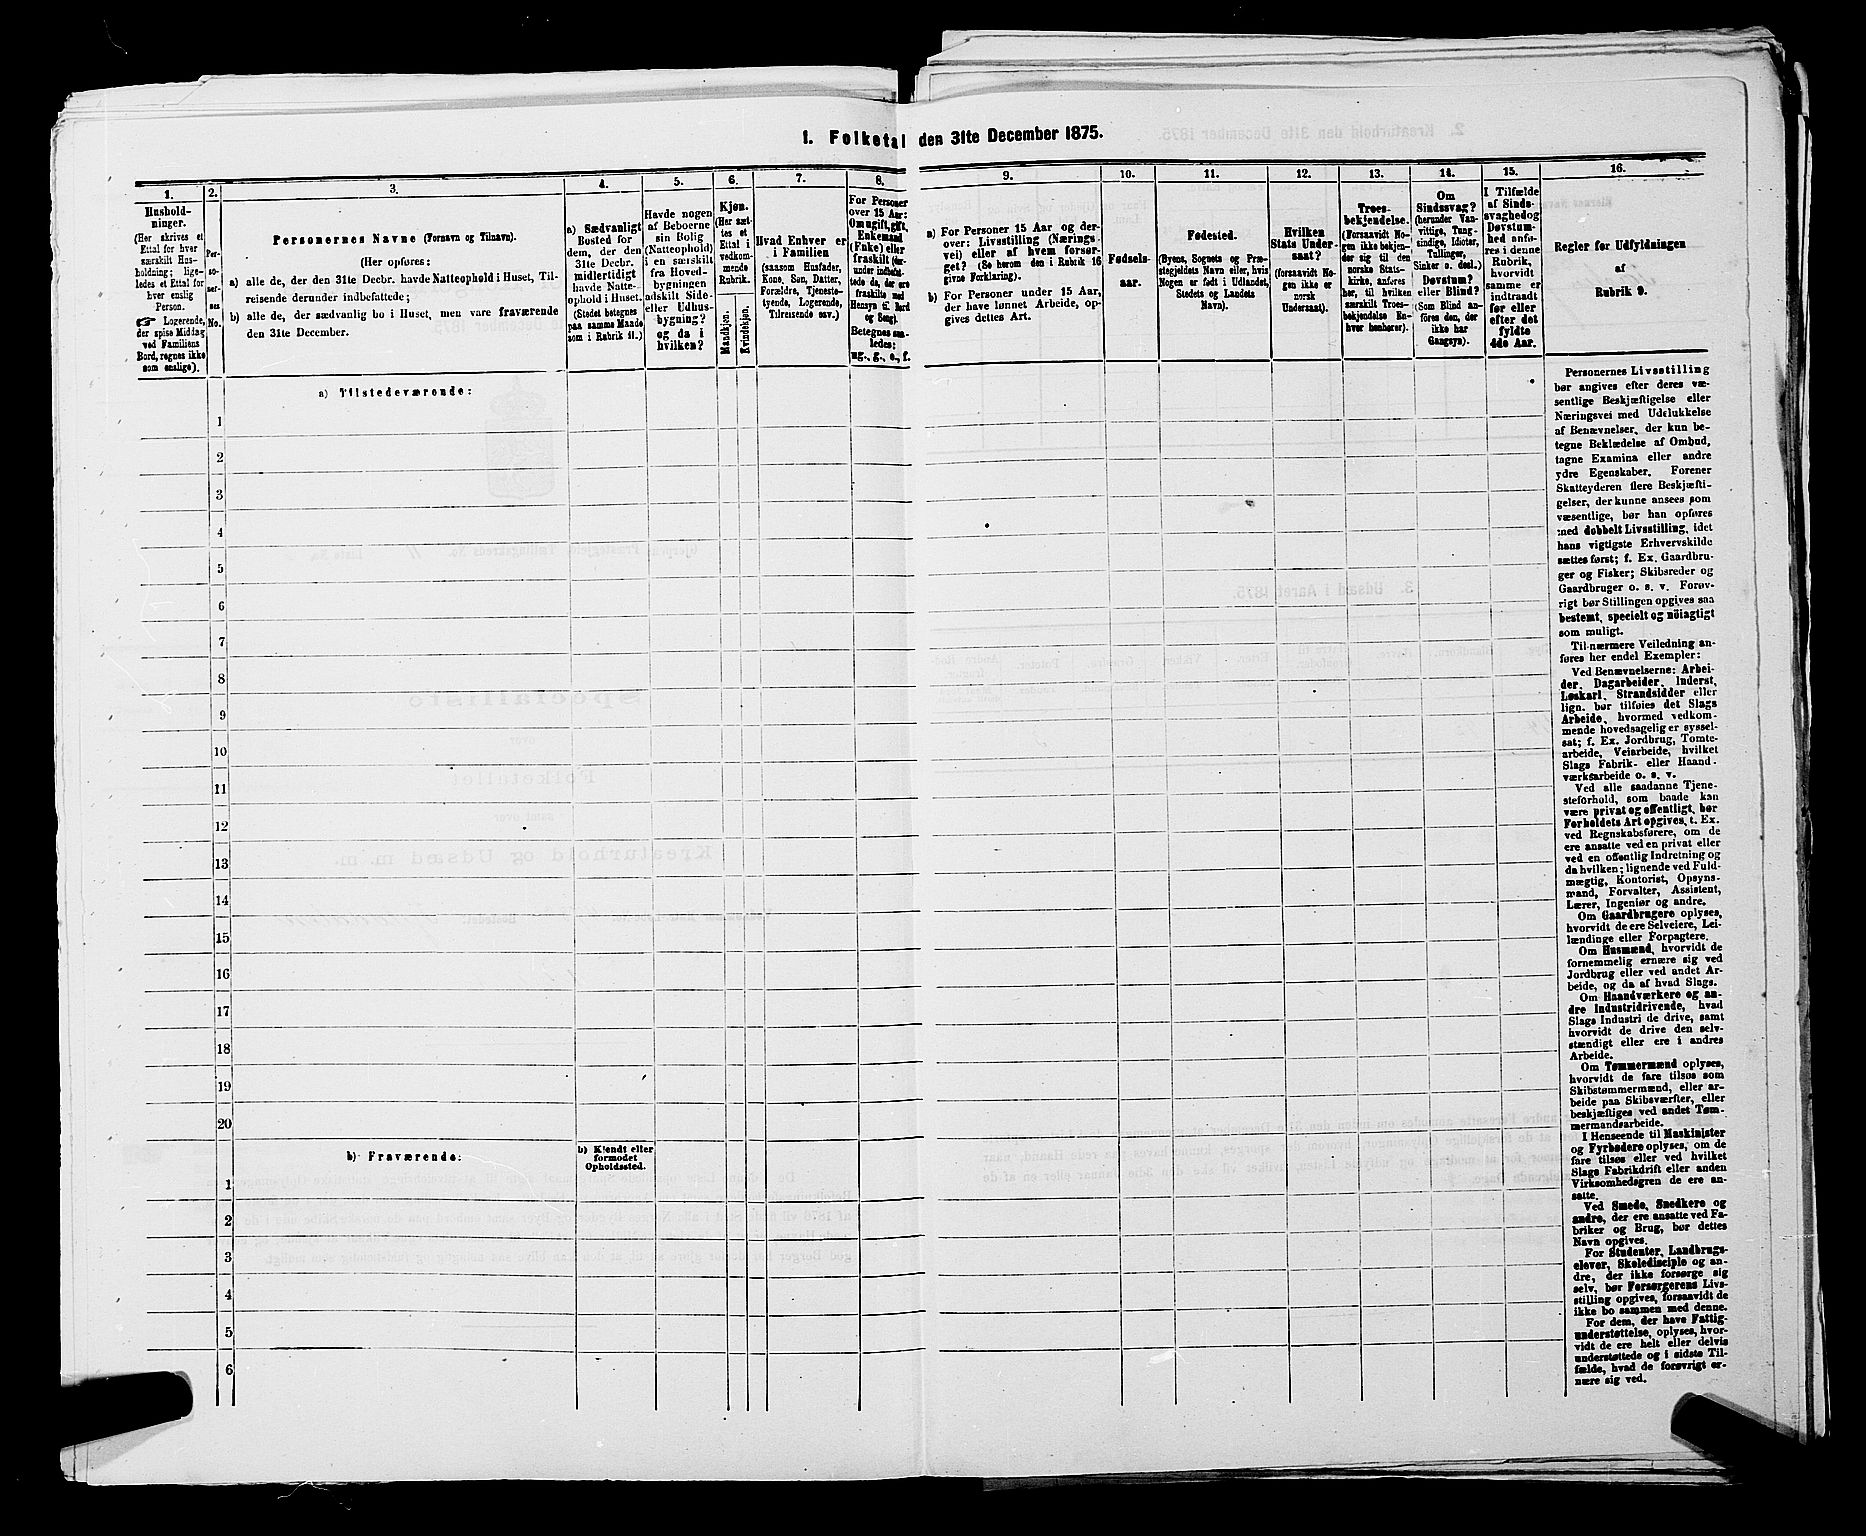 1. Folketal den 31te December 1875.
1.
2.
3.
4.
5.
6.
7.
8.
9.
10.
11.
12.
13.
14.
15.
16.
Hushold-
ninger.
(Her skrives et
Ettal for hver
særskilt Hus-
holdning; lige-
ledes et Ettal for
hver enslig
Person.
☞ Logerende,
der spise Middag
ved Familiens
Bord, regnes ikke
som enslige).
Per-
so-
ner-
nes
No.
Personernes Navne (Fornavn og Tilnavn).
(Her opføres:
a) alle de, der den 31te Decbr. havde Natteophold i Huset, Til-
reisende derunder indbefattede;
b) alle de, der sædvanlig bo i Huset, men vare fraværende
den 31te December.
a) Sædvanligt
Bosted for
dem, der den
31te Decbr.
midlertidigt
havde Natte-
ophold i Huset.
(Stedet betegnes
paa samme Maade
som i Rubrik 11.)
Havde nogen
af Beboerne
sin Bolig
(Natteophold)
i en særskilt
fra Hoved-
bygningen
adskilt Side-
eller Udhus-
bygning?
og da i
hvilken?
Kjøn.
(Her sæt-
tes et
Ettal i
vedkom-
mende
Rubrik.
Mandkjøn.
Kvindekjøn.
Hvad Enhver er
i Familien
(saasom Husfader,
Kone, Søn, Datter,
Forældre, Tjeneste-
tyende, Logerende,
Tilreisende osv.)
For Personer
over 15 Aar:
Om ugift, gift,
Enkemand
(Enke) eller
fraskilt (her-
under indbefat-
tede da, der ere
fraskilte med
Hensyn til Bord
og Seng).
Betegnes saa-
ledes:
ug., g., e., f.
a) For Personer 15 Aar og der-
over: Livsstilling (Nærings-
vei) eller af hvem forsør-
get? (Se herom den i Rubrik 16
givne Forklaring).
b) For Personer under 15 Aar,
der have lønnet Arbeide, op-
gives dettes Art.
Fødsels-
aar.
Fødested.
(Byens, Sognets og Præ-
stegjeldets Navn eller, hvis
Nogen er født i Udlandet,
Stedets og Landets
Navn).
Hvilken
Stats Under-
saat?
(forsaavidt No-
gen ikke er
norsk
Undersaat).
Troes-
bekjendelse.
(Forsaavidt No-
gen ikke bekjen-
der sig til den
norske Stats-
kirke, anføres
her, til hvilken
særskilt Troes-
bekjendelse En-
hver henhører).
Om
Sindssvag?
(herunder Van-
vittige, Tung-
sindige, Idioter,
Tullinger,
Sinker o. desl.)
Døvstum?
eller Blind?
(Som Blind an-
føres den, der
ikke har
Gangsyn).
I Tilfælde
af Sinds-
svaghed og
Døvstum-
hed anfø-
res i denne
Rubrik,
hvorvidt
samme er
indtraadt
før eller
efter det
fyldte
4de Aar.
Regler før Udfyldningen
af
Rubrik 9.
a) Tilstedeværende:
1
2
3
4
5
6
7
8
9
10
11
12
13
14
15
16
17
18
19
20
b) Fraværende:
b) Kjendt eller
formodet
Opholdssted.
1
2
3
4
5
6
Personernes Livsstilling
bør angives efter deres væ-
sentlige Beskjæftigelse eller
Næringsvei med Udelukkelse
af Benævnelser, der kun be-
tegne Beklædelse af Ombud,
tagne Examina eller andre
ydre Egenskaber. Forener
Skatteyderen flere Beskjæfti-
gelser, der kunne ansees som
væsentlige, bør han opføres
med dobbelt Livsstilling, idet
hans vigtigste Erhvervskilde
sættes først; f. Ex. Gaardbru-
ger og Fisker; Skibsreder og
Gaardbruger o. s. v. Forøv-
rigt bør Stillingen opgives saa
bestemt, specielt og nöiagtigt
som muligt.
Til nærmere Veiledning an-
føres her endel Exempler:
Ved Benævnelserne: Arbei-
der, Dagarbeider, Inderst,
Løskarl, Strandsidder eller
lign. bør tilføies det Slags
Arbeide, hvormed vedkom-
mende hovedsagelig er syssel-
sat; f. Ex. Jordbrug, Tomte-
arbeide, Veiarbeide, hvilket
Slags Fabrik- eller Haand-
værksarbeide o. s. v.
Ved alle saadanne Tjene-
steforhold, som baade kan
være privat og offentligt, bør
Forholdets Art opgives, t. Ex.
ved Regnskabsførere, om de
ere ansatte ved en privat eller
ved en offentlig Indretning og
da hvilken; lignende ved Fuld-
mægtig, Kontorist, Opsyns-
mand, Forvalter, Assistent,
Lærer, Ingeniør og andre.
Om Gaardbrugere oplyses,
hvorvidt de ere Selveiere, Lei-
lændinge eller Forpagtere.
Om Husmænd, hvorvidt de
fornemmelig ernære sig ved
Jordbrug eller ved andet Ar-
beide, og da af hvad Slags.
Om Haandværkere og an-
dre Industridrivende, hvad
Slags Industri de drive, samt
hvorvidt de drive den selv-
stændigt eller ere i andres
Arbeide.
Om Tømmermænd oplyses,
hvorvidt de fare tilsøs som
Skibstømmermænd, eller ar-
beide paa Skibsværfter, eller
beskjæftiges ved andet Tøm-
mermandsarbeide.
I Henseende til Maskinister
og Fyrbødere oplyses, om de
fare tilsøs eller ved hvilket
Slags Fabrikdrift eller anden
Virksomhedsgren de ere an-
satte.
Ved Smede, Snedkere og
andre, der ere ansatte ved Fa-
briker og Brug, bør dettes
Navn opgives.
For Studenter, Landbrugs-
elever, Skoledisciple og an-
dre, der ikke forsørge sig
selv, bør Forsørgerens Livs-
stilling opgives, forsaavidt de
ikke bo sammen med denne.
For dem, der have Fattig-
understøttelse, oplyses, hvor-
vidt de ere helt eller delvis
understøttede og i sidste Til-
fælde, hvad de forøvrigt er-
nære sig ved.